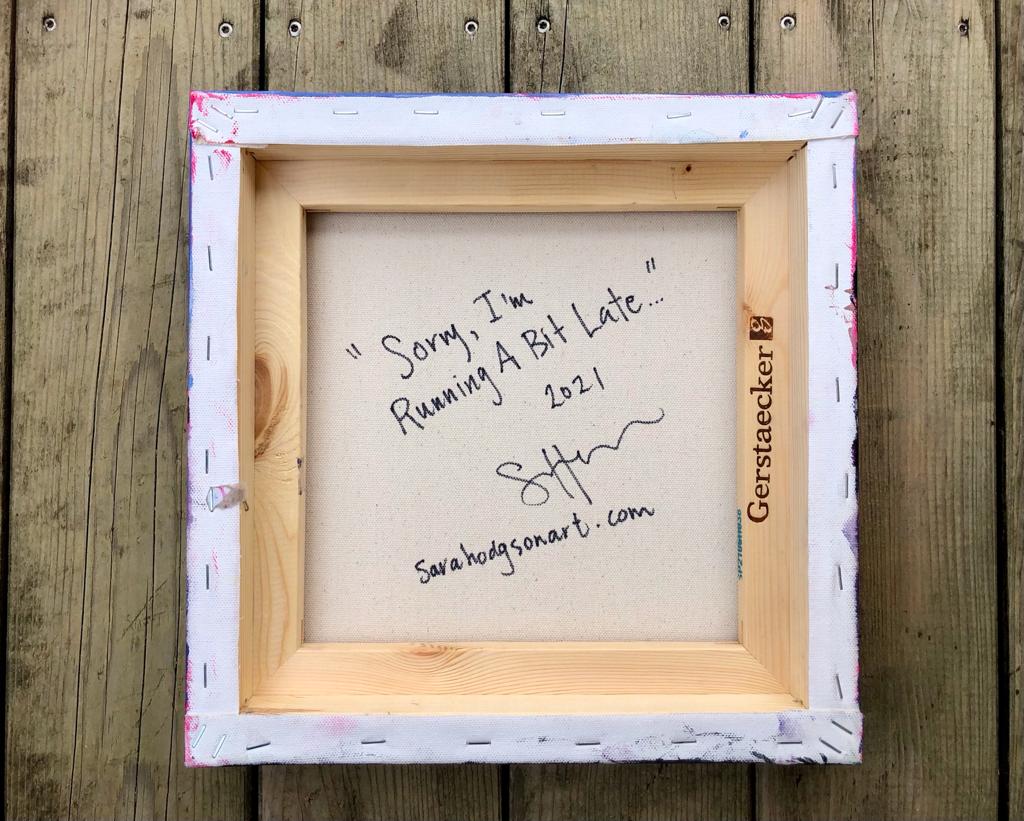 "Sorry, I'm
Running A Bit Late..."
2021
sarahodgsonart.com
Gerstaecker